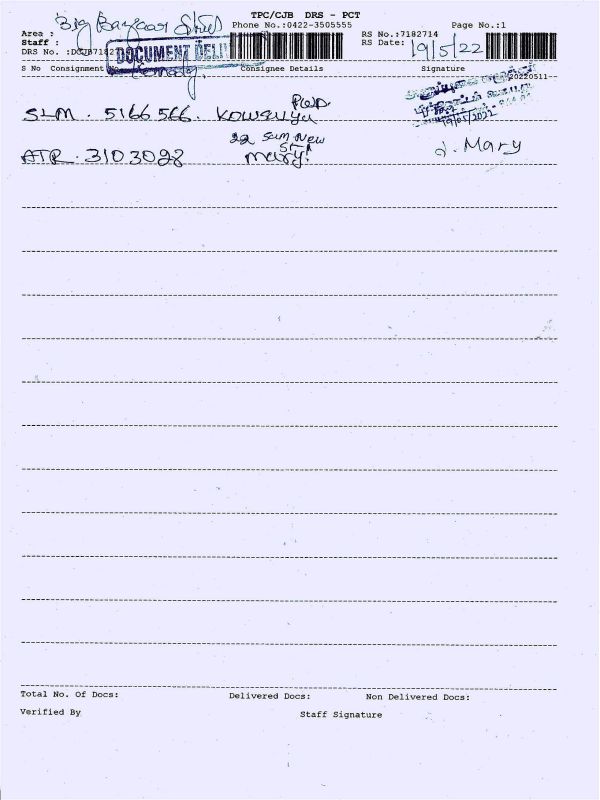 TPC/CJB DRS - PCT
Big Bazaar Street
Phone No.:0422-3505555
Page No.:1
Area :
RS No.:7182714
Staff :
RS Date: 19/5/22
DRS No. :DCJB7182714
DOCUMENT DELI
S No Consignment No Consignee Details Signature
20220511--
SLM. 5166566. Kowsuya
19/05/2022
22 Sam New
ATR. 3103028 mary. J. Mary
Total No. Of Docs: Delivered Docs: Non Delivered Docs:
Verified By Staff Signature